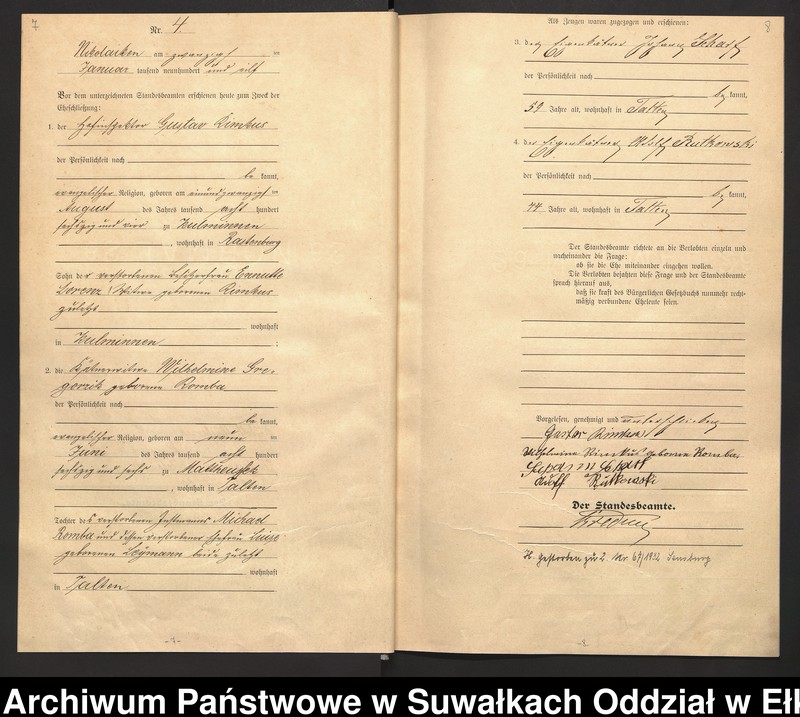 7
Nr. 4
Nikolaiken am zwanzigsten
Januar tausend neunhundert und elf
Vor dem unterzeichneten Standesbeamten erschienen heute zum Zweck der
Eheschließung:
1. der Hofinspektor Gustav Rimkus
der Persönlichkeit nach
be kannt,
evangelischer Religion, geboren am einundzwanzigsten
August des Jahres tausend acht hundert
sechzig und vier zu Kulminnen
, wohnhaft in Rastenburg
Sohn der verstorbenen Besitzerfrau Ennutte
Lorenz, Witwe geborenen Rimkus
zuletzt
wohnhaft
in Kulminnen ;
2. die Kätnerwitwe Wilhelmine Gre-
gorzik geborene Romba
der Persönlichkeit nach
be kannt,
evangelischer Religion, geboren am neunten
Juni des Jahres tausend acht hundert
sechzig und sechs zu
, wohnhaft in Talten
Tochter des verstorbenen Instmanns Michael
Romba und dessen verstorbener Ehefrau Luise
geborenen beide zuletzt
wohnhaft
in Talten
-7-
8
Als Zeugen waren zugezogen und erschienen:
3. der Eigenkätner Johann Skatf
der Persönlichkeit nach
be kannt,
59 Jahre alt, wohnhaft in Talten
4. der Eigenkätner Adolf Rutkowski
der Persönlichkeit nach
be kannt,
44 Jahre alt, wohnhaft in Talten
Der Standesbeamte richtete an die Verlobten einzeln und
nacheinander die Frage:
ob sie die Ehe miteinander eingehen wollen.
Die Verlobten bejahten diese Frage und der Standesbeamte
sprach hierauf aus,
daß sie kraft des Bürgerlichen Gesetzbuchs nunmehr recht-
mäßig verbundene Eheleute seien.
Vorgelesen, genehmigt und unterschrieben
Gustav Rimkus
Wilhelmine Rimkus geborene Romba
Adolf Rutkowski
Der Standesbeamte.
H. gestorben zu 2. Nr 67/1932 Sensburg
-8-
Archiwum Państwowe w Suwałkach Oddział w Ełk